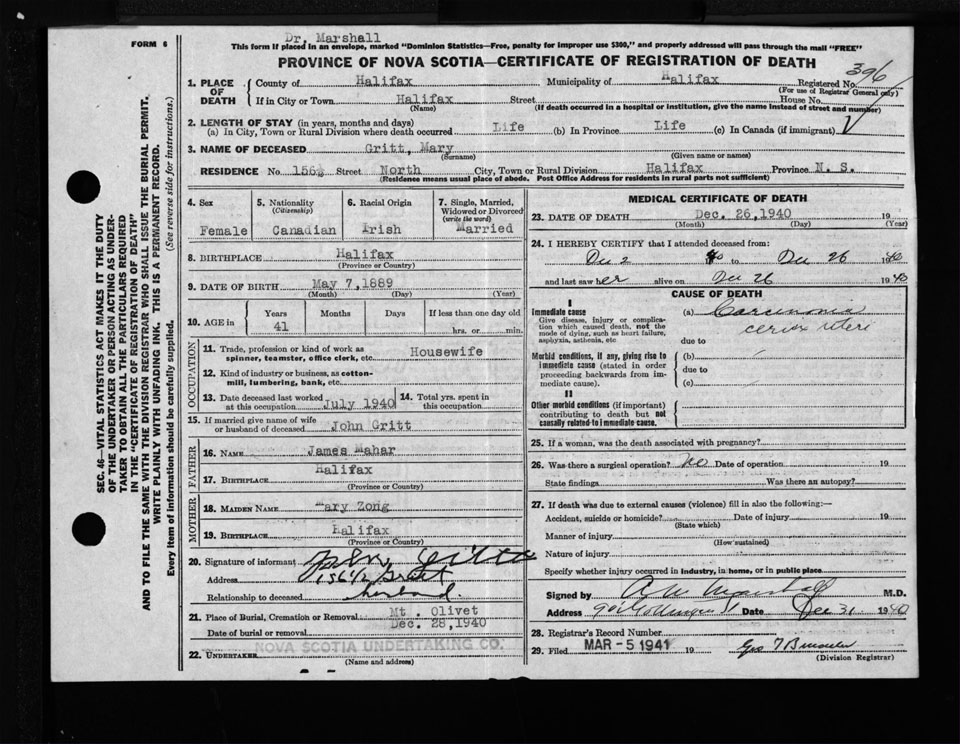 Dr. Marshall
FORM 6
This form if placed in an envelope, marked "Dominion Statistics—Free, penalty for improper use $300," and properly addressed will pass through the mail "FREE"
PROVINCE OF NOVA SCOTIA—CERTIFICATE OF REGISTRATION OF DEATH
396
1. PLACE OF DEATH { County of Halifax Municipality of Halifax Registered No.
(For use of Registrar General only)
If in City or Town Halifax Street House No.
(Name) (If death occurred in a hospital or institution, give the name instead of street and number)
2. LENGTH OF STAY (in years, months and days)
(a) In City, Town or Rural Division where death occurred Life (b) In Province Life (c) In Canada (if immigrant)
3. NAME OF DECEASED Gritt, Mary
(Surname) (Given name or names)
RESIDENCE No 156½ Street North City, Town or Rural Division Halifax Province N. S.
(Residence means usual place of abode. Post Office Address for residents in rural parts not sufficient)
4. Sex
Female
5. Nationality
(Citizenship)
Canadian
6. Racial Origin
Irish
7. Single, Married, Widowed or Divorced
(write the word)
Married
8. BIRTHPLACE Halifax
(Province or Country)
9. DATE OF BIRTH May 7,1889
(Month) (Day) (Year)
10. AGE in
Years Months Days If less than one day old
41 hrs. or min.
OCCUPATION
11. Trade, profession or kind of work as spinner, teamster, office clerk, etc. Housewife
12. Kind of industry or business, as cotton-mill, lumbering, bank, etc.
13. Date deceased last worked at this occupation July 1940
14. Total yrs. spent in this occupation
15. If married give name of wife or husband of deceased John Gritt
FATHER
16. NAME James Mahar
17. BIRTHPLACE Halifax
(Province or Country)
MOTHER
18. MAIDEN NAME Mary Zong
19. BIRTHPLACE Halifax
(Province or Country)
20. Signature of informant John Gritt
Address 156½
Relationship to deceased husband
21. Place of Burial, Cremation or Removal Mt. Olivet
Date of burial or removal Dec. 28,1940
22. UNDERTAKER NOVA SCOTIA UNDERTAKING CO.
(Name and address)
MEDICAL CERTIFICATE OF DEATH
23. DATE OF DEATH Dec. 26,1940 19
(Month) (Day) (Year)
24. I HEREBY CERTIFY that I attended deceased from:
Dec 2 40 to Dec 26 1940
and last saw her alive on Dec 26 1940
CAUSE OF DEATH
I
Immediate cause
Give disease, injury or complication which caused death, not the mode of dying, such as heart failure, asphyxia, asthenia, etc
(a) Carcinoma
cervix uteri
due to
Morbid conditions, if any, giving rise to immediate cause (stated in order proceeding backwards from immediate cause).
(b)
due to
(c)
II
Other morbid conditions (if important) contributing to death but not causally related to immediate cause.
25. If a woman, was the death associated with pregnancy?
26. Was there a surgical operation? no Date of operation 19
State findings Was there an autopsy?
27. If death was due to external causes (violence) fill in also the following:—
Accident, suicide or homicide? Date of injury 19
(State which)
Manner of injury
(How sustained)
Nature of injury
Specify whether injury occurred in industry, in home, or in public place
Signed by A W Marshall M.D.
Address Date Dec 31 1940
28. Registrar's Record Number
29. Filed MAR - 5 1941 19
(Division Registrar)
SEC. 46—VITAL STATISTICS ACT MAKES IT THE DUTY
OF THE UNDERTAKER OR PERSON ACTING AS UNDER-
TAKER TO OBTAIN ALL THE PARTICULARS REQUIRED
IN THE "CERTIFICATE OF REGISTRATION OF DEATH"
AND TO FILE THE SAME WITH THE DIVISION REGISTRAR WHO SHALL ISSUE THE BURIAL PERMIT.
WRITE PLAINLY WITH UNFADING INK. THIS IS A PERMANENT RECORD.
Every item of information should be carefully supplied. (See reverse side for instructions.)